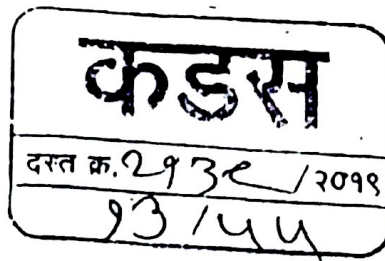 कडस
दस्त क्र. २१३९/२०१९
१३/५५